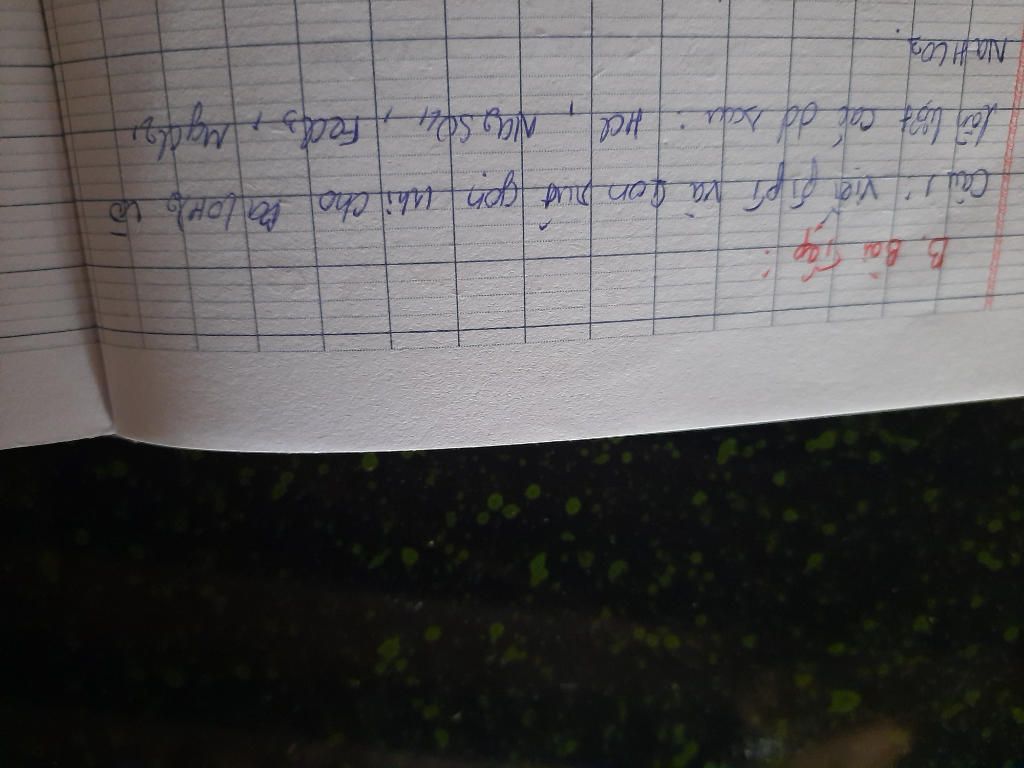 B. Bài Tập :
Câu 1 viết ptpt và ion rút gọn khi cho Ba(OH)2 vô
lần lượt các dd sau : HCl , Na2SO4 , FeCl3 , MgCl2,
NaHCO3